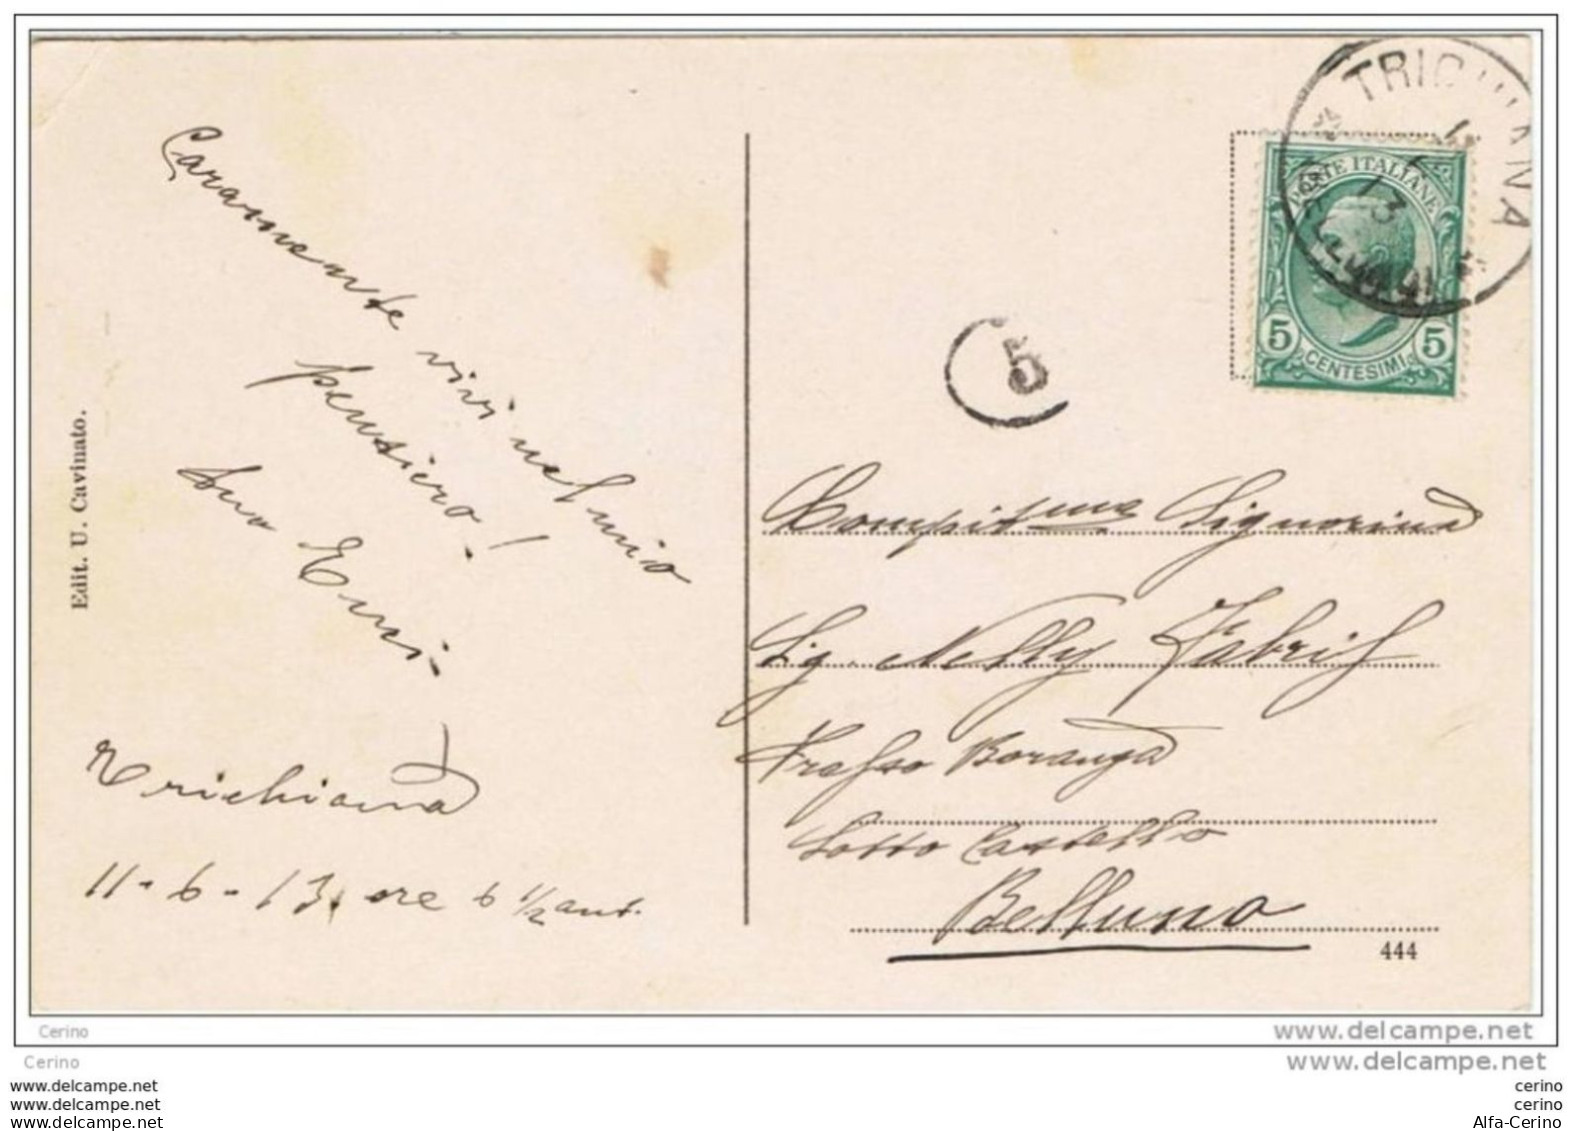 Caramente vivi nel mio
pensiero!
tuo
Trichiana
11-6-13. ore 6 1/2 ant.
Edit. U. Cavinato.
TRIC
ANA
13
POSTE ITALIANE
5 CENTESIMI 5
5
Compitma Signorina
Sig. Nelly Fabris
Boranga
Sotto Castello
Belluno
444
Cerino
www.delcampe.net
Cerino
www.delcampe.net
www.delcampe.net
cerino
www.delcampe.net
cerino
www.delcampe.net
Alfa-Cerino